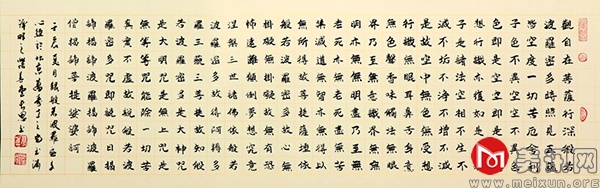 觀自在菩薩行深般若
波羅密多時照見五蘊
皆空度一切苦厄舍利
子色不異空空不異色
色即是空空即是色受
想行識亦復如是舍利
子是諸法空相不生不
滅不垢不淨不增不減
是故空中無色無受想
行識無眼耳鼻舌身意
無色聲香味觸法無眼
界乃至無意識界無無
明亦無無明盡乃至無
老死亦無老死盡無苦
集滅道無智亦無得以
無所得故菩提薩埵依
般若波羅密多故心無
掛礙無掛礙故無有恐
怖遠離顛倒夢想究竟
涅槃三世諸佛依般若
波羅密多故得阿耨多
羅三藐三菩提故知般
若波羅密多是大神咒
是大明咒是無上咒是
無等等咒能除一切苦
真實不虛故說般若波
羅密多咒即說咒曰揭
諦揭諦波羅揭諦波羅
僧揭諦菩提娑婆訶
壬辰夏月錄般若波羅密多
心經於北京
美讯网
www.meixun.org